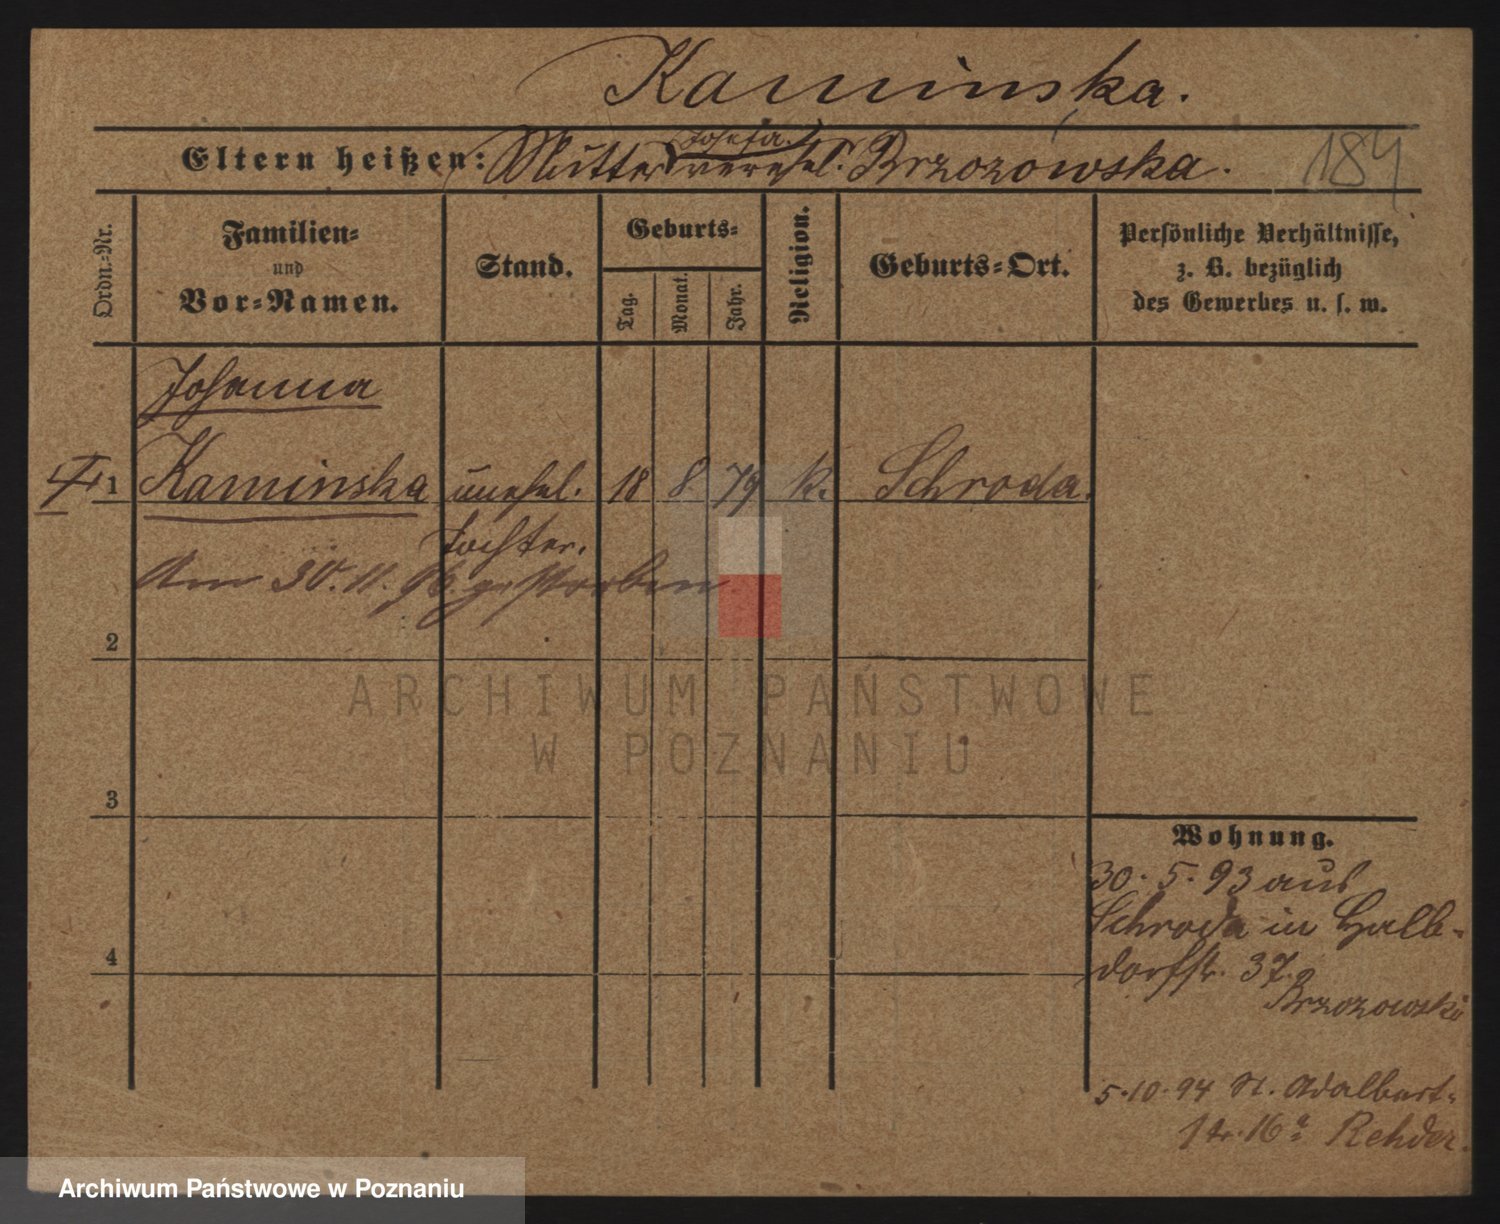 Kaminska.
Eltern heißen: Mutter Josefa verehel. Brzozowska. 184
Ordn.-Nr.
Familien-
und
Vor-Namen.
Stand.
Geburts-
Tag.
Monat.
Jahr.
Religion.
Geburts-Ort.
Persönliche Verhältnisse,
z. B. bezüglich
des Gewerbes u. s. w.
Johanna
1 Kaminska unehel. 18 8 79 k. Schroda.
Tochter.
Am 30. 11. 96. gestorben
2
ARCHIWUM PAŃSTWOWE
W POZNANIU
3
Wohnung.
30. 5. 93 aus
Schroda in Halb-
dorfstr. 37.
Brzozowski
4
5. 10. 94 St. Adalbert-
str. 16a Rehder.
Archiwum Państwowe w Poznaniu